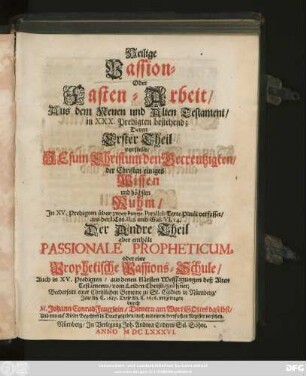 Heilige
Passion-
Oder
Fasten-Arbeit/
Aus dem Neuen und Alten Testament/
in XXX. Predigten bestehend;
Deren
Erster Theil
vorstellet/
JEsum Christum den Gecreutzigten/
der Christen einiges
Wissen
und höchsten
Ruhm/
In XV. Predigten über zween kurtze Parallel-Texte Pauli verfasset/
aus der I. Cor. II. 2. und Gal. VI. 14.
Der Andre Theil
aber enthält
PASSIONALE PROPHETICUM,
oder eine
Prophetische Passions-Schule/
Auch in XV. Predigten/ aus denen Weissagungen deß Alten
Testaments/ vom Leiden Christi
Beederseits einer Christlichen Gemeine zu St. in Nürnberg/
durch
M. Johann Conrad Feuerlein/ Dienern am Wort GOttes daselbst/
Nürnberg/ In Verlegung Joh. Andreä Endters Sel. Söhne.
ANNO M DC LXXXVI.